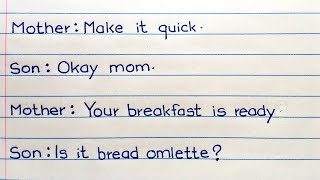 Mother: Make it quick.
Son: Okay mom.
Mother: Your breakfast is ready.
Son: Is it bread omlette?